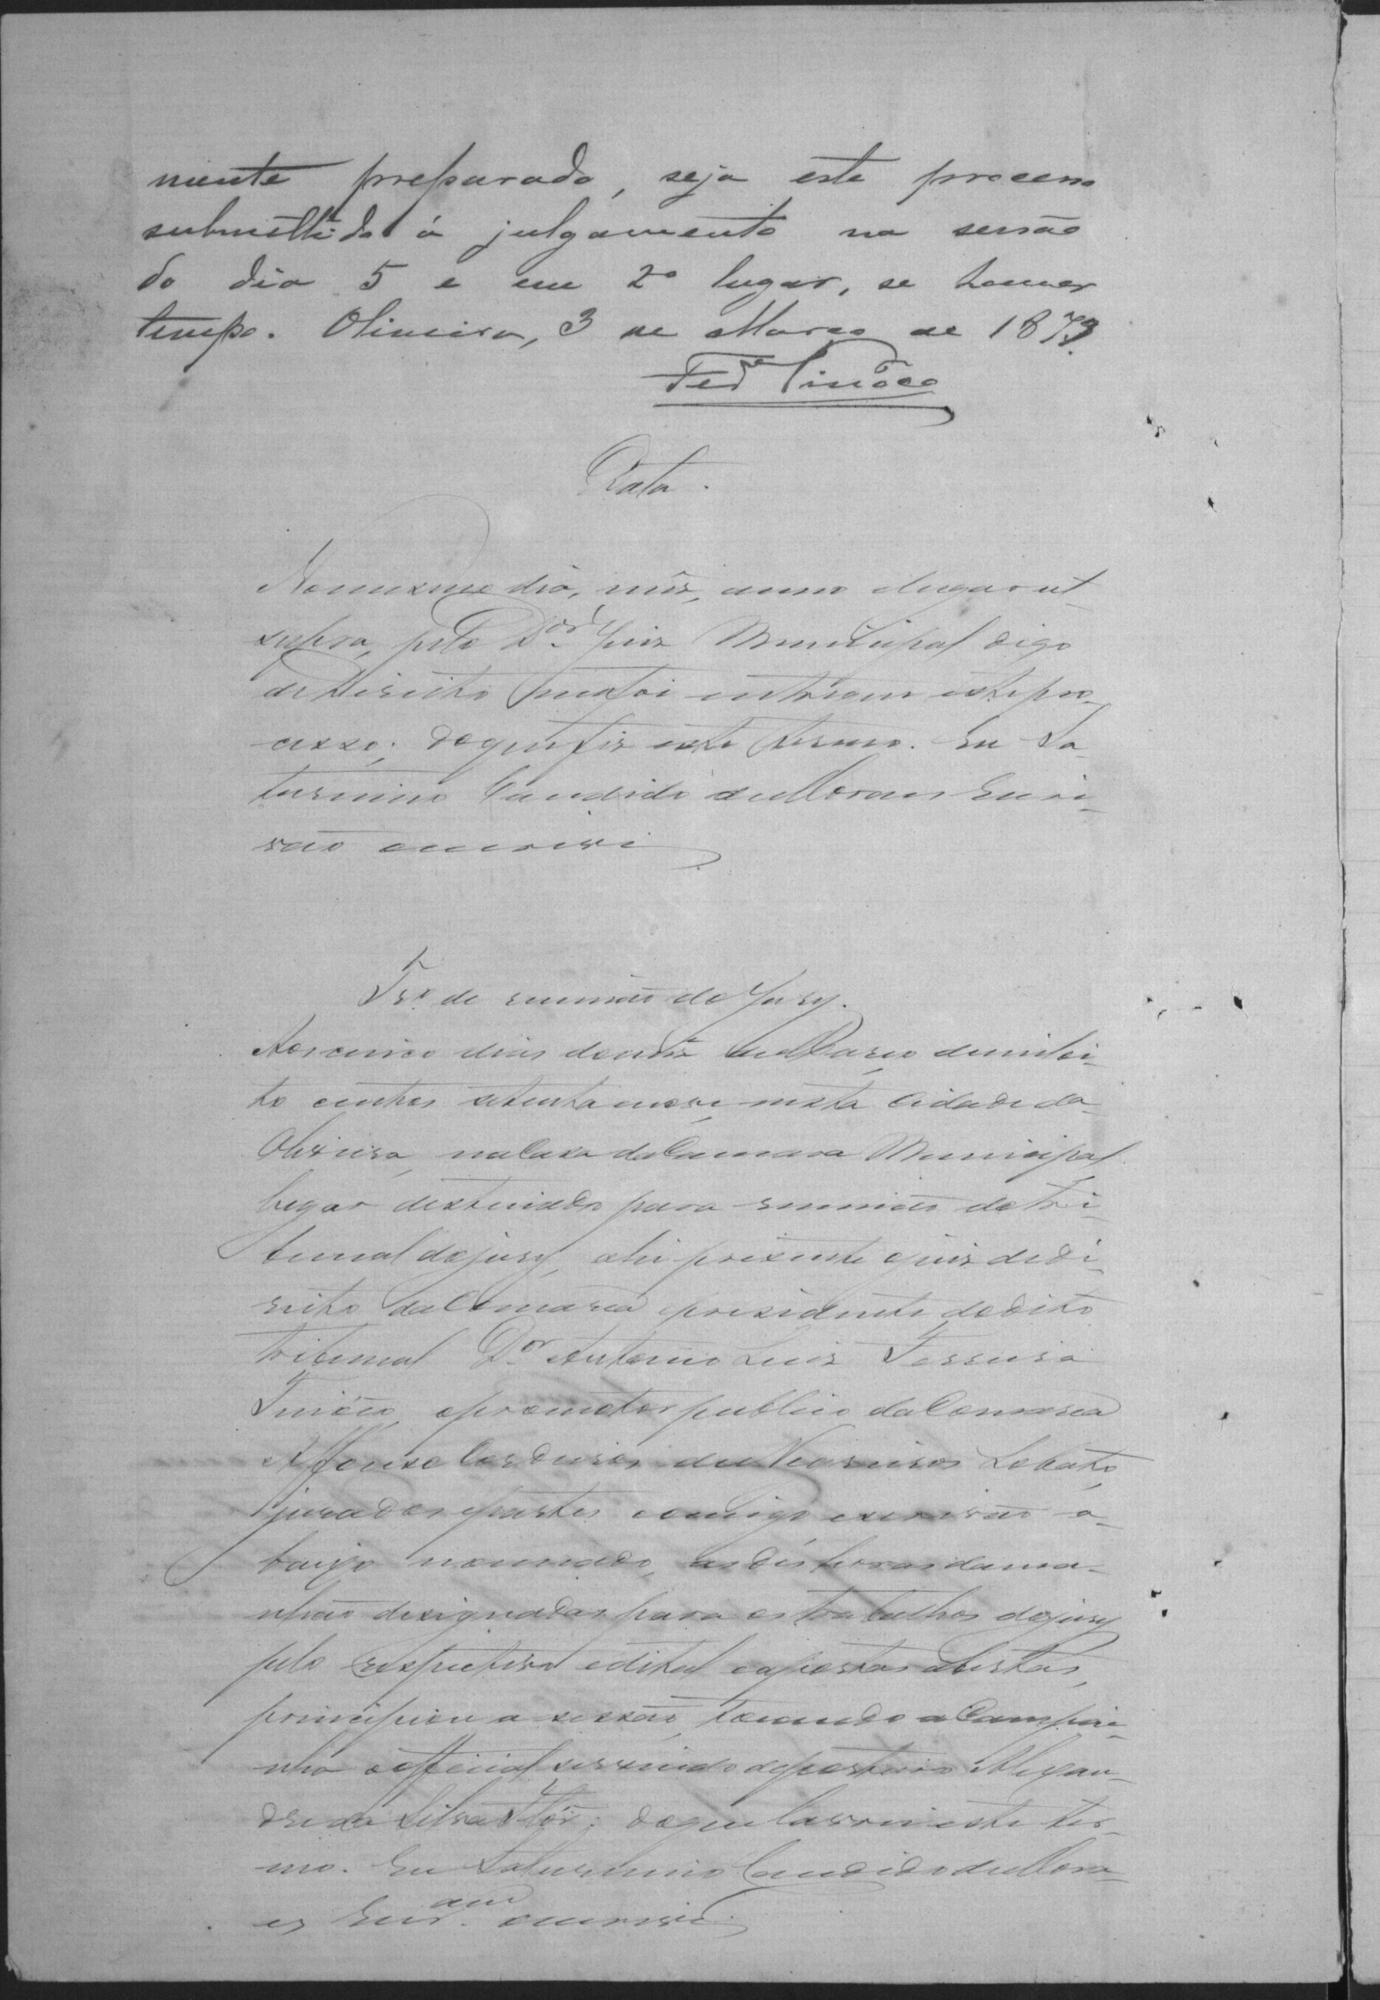 mente preparado, seja este processo
submettido á julgamento na sessão
do dia 5 e em 2º lugar, se houver
tempo. Oliveira, 3 de Março de 1879.
Ferrª Tinôco
Data.
No mesmo dia, mês, anno e lugar ut
supra, pelo Dor. Juiz Municipal digo
de Direito me foi entregue este pro-
cesso; do que fiz este termo. Eu Sa-
turnino Candido de Moraes Escri-
vão o escrevi
Tro. de reunião do Jury.
Aos cinco dias do mês de Março de mil oi-
to centos setenta e nove, nesta Cidade da
Oliveira, na Casa da Camara Municipal
lugar destinado para reunião do tri-
bunal do jury, ahi presente o juiz de di-
reito da Comarca presidente do dito
tribunal Dor. Antonio Luiz Ferreira
Tinôco, o promotor publico da Comarca
Affonso Cordeiro de Negreiros Lobato,
jurados e partes comigo escrivão a-
baixo nomeado, as dés horas da ma-
nhão designadas para os trabalhos do jury
pelo respectivo edital e a portas abertas,
principiou a sessão, tocando a Campai-
nha o official servindo de porteiro Alexan-
dre da Silva Flôr; do que lavrei este ter-
mo. Eu Saturnino Candido de Mora-
es Escram. o escrevi.